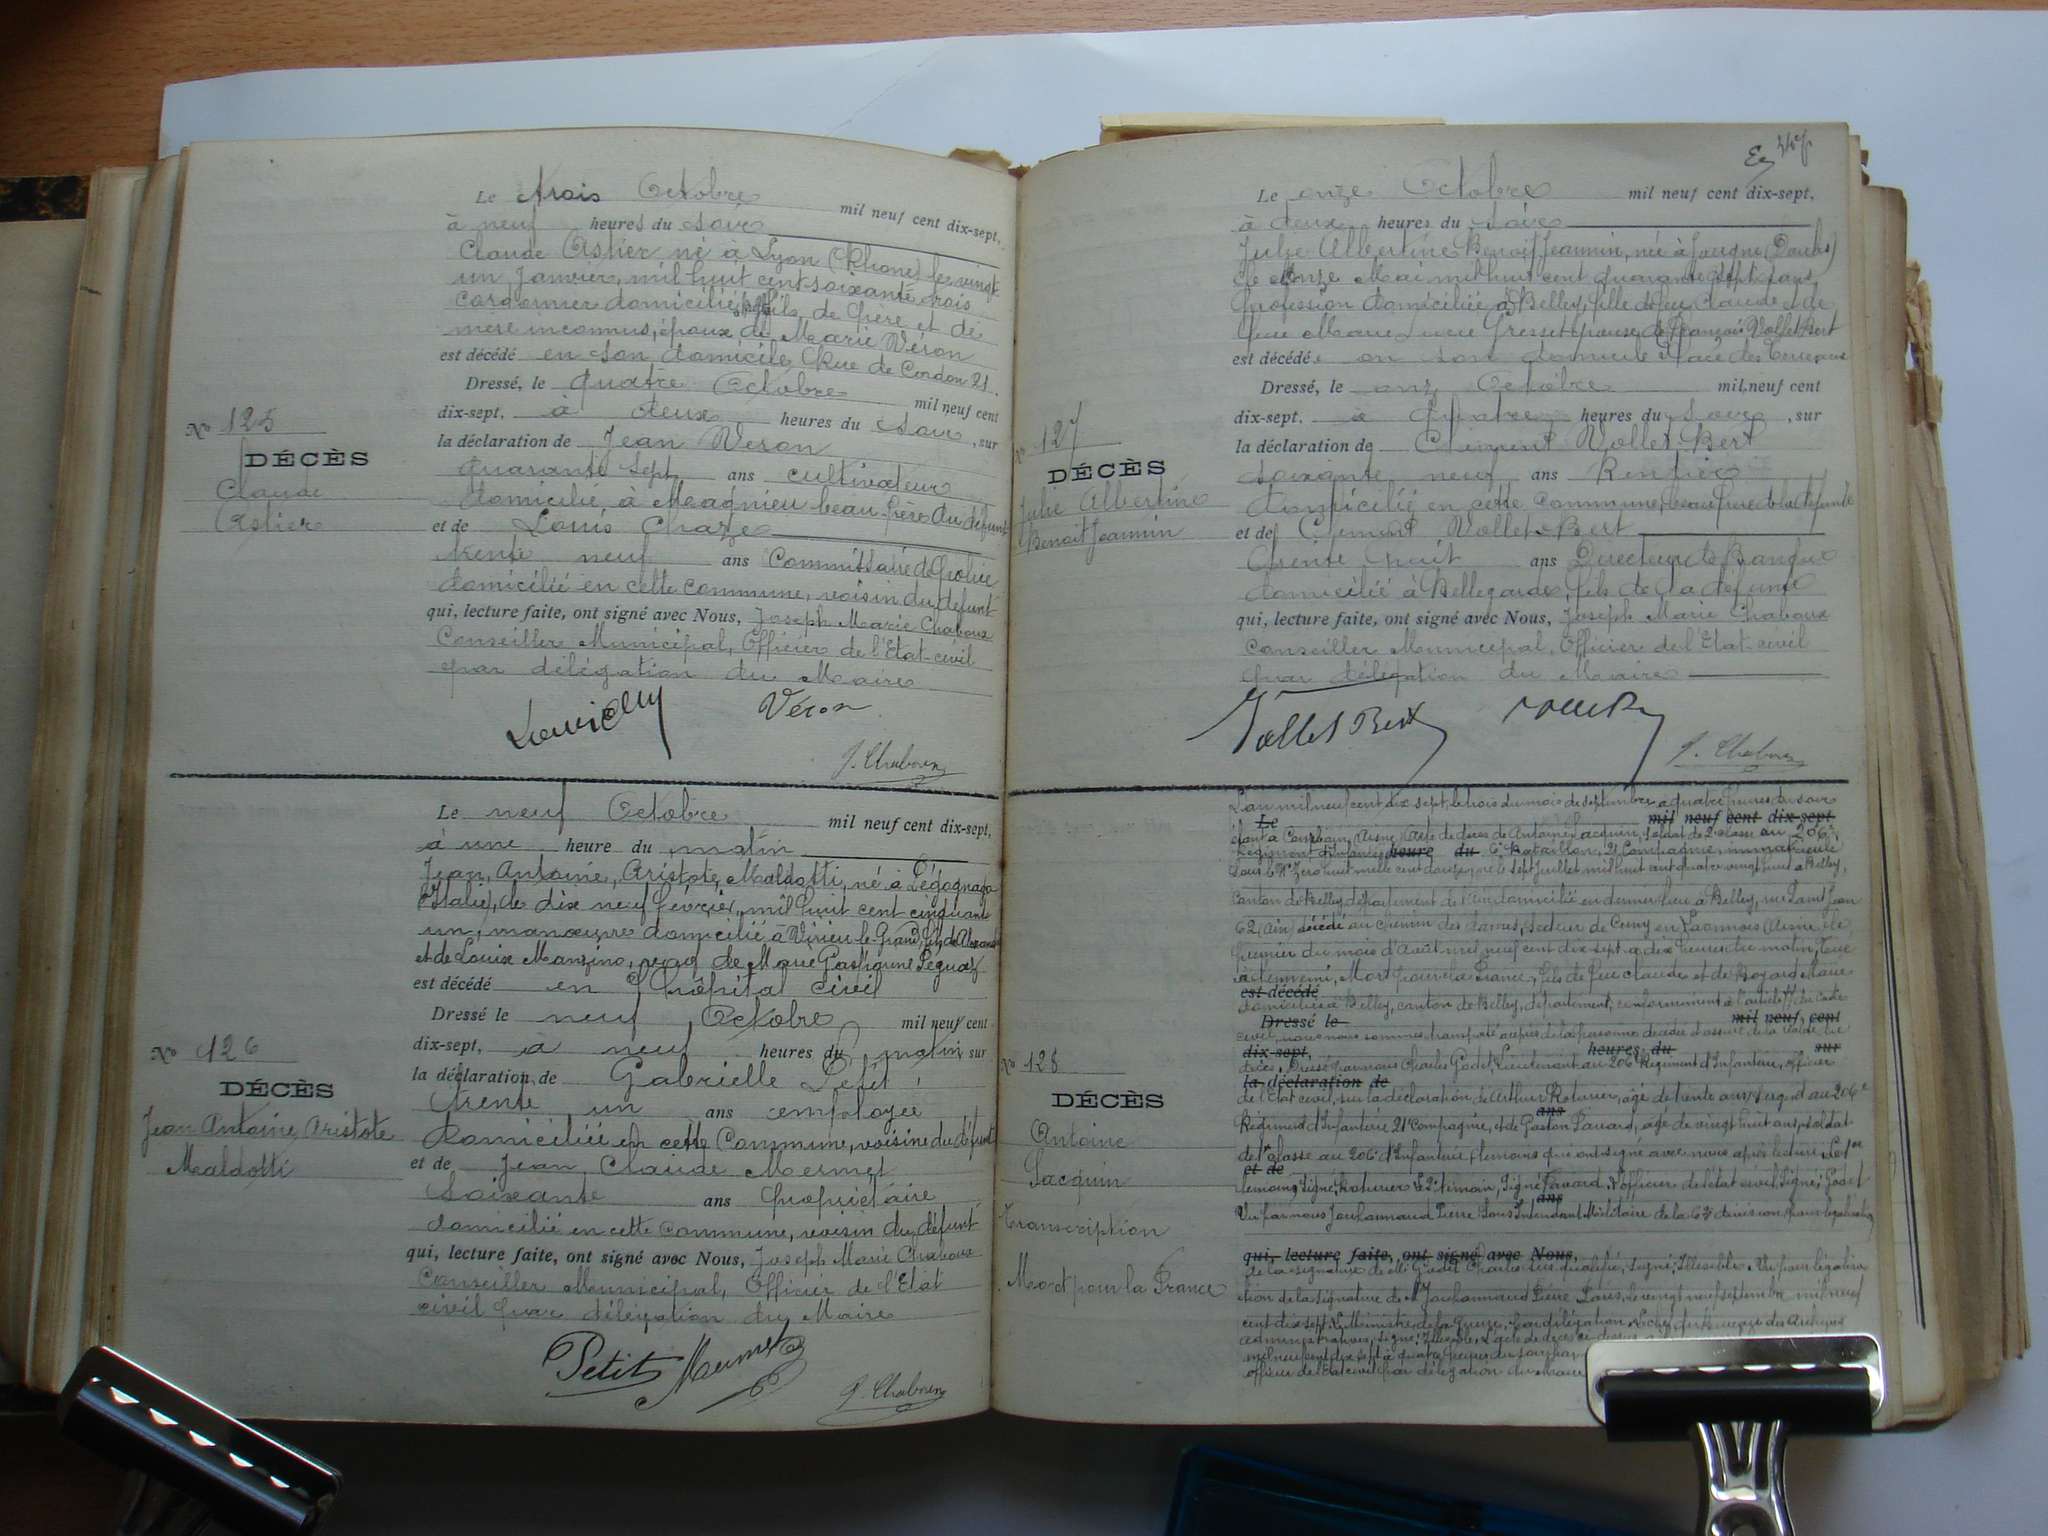 Le trois Octobre mil neuf cent dix-sept,
à neuf heures du soir
Claude Astier né à Lyon (Rhône) le vingt
un Janvier, mil huit cent soixante trois
cordonnier domicilié fils de père et de
mère inconnus, époux de Marie Véron
est décédé en son domicile Rue de Cordon 21.
Dressé, le quatre Octobre mil neuf cent
dix-sept, à deux heures du soir, sur
la déclaration de Jean Véron
quarante sept ans cultivateur
domicilié à Magnieu beau-frère du défunt
et de Louis Chaze
trente neuf ans Commissaire de Police
domicilié en cette commune, voisin du défunt
qui, lecture faite, ont signé avec Nous, Joseph Marie Chaboux
Conseiller Municipal, Officier de l'Etat-civil
par délégation du Maire
Véron
J. Chaboux
No 125
DÉCÈS
Claude
Astier
Le neuf Octobre mil neuf cent dix-sept,
à une heure du matin
Jean, Antoine, Aristote, Maldotti, né à
(Italie), le dix neuf février, mil huit cent cinquante
un, manœuvre domicilié à Virieu-le-Grand, fils de
et de Louise Manzino, veuf de Marie
est décédé en l'hôpital civil
Dressé le neuf Octobre mil neuf cent
dix-sept, à neuf heures du matin sur
la déclaration de Gabrielle Petit
trente un ans employée
domiciliée en cette Commune, voisine du défunt
et de Jean Claude Mermet
soixante ans propriétaire
domicilié en cette commune, voisin du défunt
qui, lecture faite, ont signé avec Nous, Joseph Marie Chaboux
Conseiller Municipal, Officier de l'Etat
civil par délégation du Maire
Petit Mermet
J. Chaboux
No 126
DÉCÈS
Jean Antoine Aristote
Maldotti
Le onze Octobre mil neuf cent dix-sept,
à deux heures du soir
Julie Albertine Benoit Jeannin, née à Jougne (Doubs)
le onze Mai mil huit cent quarante sept sans
profession domiciliée à Belley, fille de feu Claude et de
feue Marie Gresset épouse de François Vollet Bert
est décédée en son domicile Place des Terreaux
Dressé, le onze Octobre mil neuf cent
dix-sept, à quatre heures du soir, sur
la déclaration de Clément Vollet-Bert
soixante neuf ans Rentier
domicilié en cette commune, beau frère de la défunte
et de Clément Vollet-Bert
trente huit ans Directeur de Banque
domicilié à Bellegarde, fils de la défunte
qui, lecture faite, ont signé avec Nous, Joseph Marie Chaboux
Conseiller Municipal, Officier de l'Etat-civil
par délégation du Maire
Vollet Bert
J. Chaboux
No 127
DÉCÈS
Julie Albertine
Benoit Jeannin
L'an mil neuf cent dix sept, le trois du mois de septembre à quatre heures du soir
Le mil neuf cent dix-sept
étant à (Aisne) Acte de décès de Antoine Jacquin, soldat de 2e classe au 206e
Régiment d'Infanterie heure du 6e Bataillon, 21e Compagnie, immatriculé
né le sept Juillet mil huit cent quatre vingt à Belley,
canton de Belley, département de l'Ain domicilié en dernier lieu à Belley, rue Saint Jean
62, (Ain) décédé au chemin des dames, secteur de Cerny en Laonnois (Aisne) le
premier du mois d'Août mil neuf cent dix-sept à dix heures du matin, Tué
à l'ennemi, Mort pour la France, fils de feu Claude et de Marie
est décédé
domiciliés à Belley, canton de Belley, département, conformément à l'article 77 du code
Dressé le mil neuf cent
civil, nous nous sommes transporté auprès de la personne décédée et assuré de la réalité du
dix-sept, heures du sur
décès. Dressé par nous Charles Godet, Lieutenant au 206e Régiment d'Infanterie, officier
la déclaration de
de l'Etat civil, sur la déclaration de Arthur Roturier, âgé de trente ans, sergent au 206e
ans
Régiment d'Infanterie 21e Compagnie, et de Gaston âgé de vingt huit ans, soldat
de classe au 206e d'Infanterie, témoins qui ont signé avec nous après lecture. Le 1er
et de
témoin, signé: Roturier. Le 2e témoin, signé: l'officier de l'état civil, signé: Godet
ans
Vu par nous Jouhannaud Pierre Louis Intendant Militaire de la division pour légalisation
qui, lecture faite, ont signé avec Nous,
de la signature de Mr Godet Charles sus qualifié, signé: Illisible. Vu pour légalisa
tion de la signature de Mr Jouhannaud Pierre Louis, le vingt neuf septembre mil neuf
cent dix sept. Le Ministre de la Guerre, par délégation, le chef du Bureau des Archives
administratives, signé: Illisible. L'acte de décès ci dessus
mil neuf cent dix sept à quatre heures du soir par
officier de l'Etat civil par délégation du maire
No 128
DÉCÈS
Antoine
Jacquin
Transcription
Mort pour la France